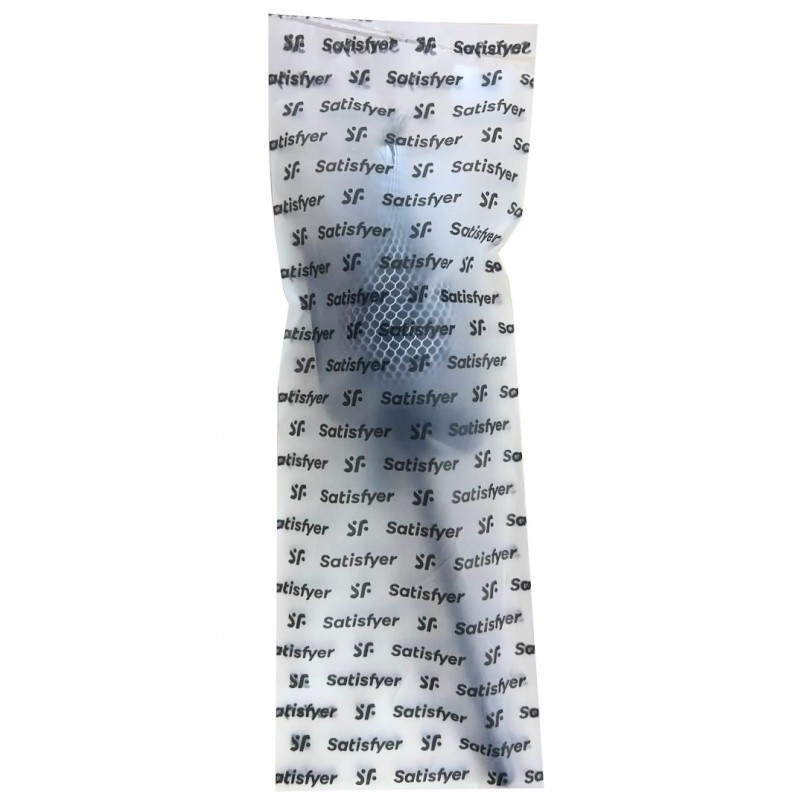 SF Satisfyer SF Satisfyer
atisfyer SF Satisfyer SF Sa
SF Satisfyer SF Satisfyer
atisfyer SF Satisfyer SF Sa
SF Satisfyer SF Satisfyer
atisfyer SF Satisfyer SF Sa
SF Satisfyer SF Satisfyer
atisfyer SF Satisfyer SF Sa
SF Satisfyer SF Satisfyer
atisfyer SF Satisfyer SF Sa
SF Satisfyer SF Satisfyer
atisfyer SF Satisfyer SF Sa
SF Satisfyer SF Satisfyer
atisfyer SF Satisfyer SF Sa
SF Satisfyer SF Satisfyer
atisfyer SF Satisfyer SF Sa
SF Satisfyer SF Satisfyer
atisfyer SF Satisfyer SF Sa
SF Satisfyer SF Satisfyer
atisfyer SF Satisfyer SF Sa
SF Satisfyer SF Satisfyer
atisfyer SF Satisfyer SF Sa
SF Satisfyer SF Satisfyer
atisfyer SF Satisfyer SF Sa